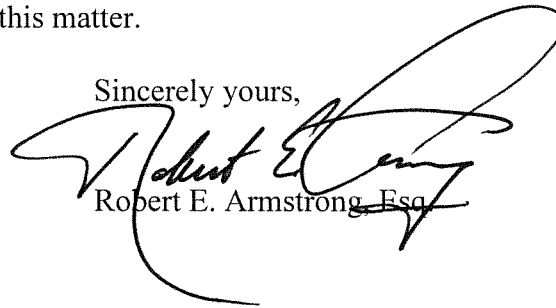 this matter.
Sincerely yours,
Robert E.
Robert E. Armstrong, Esq.